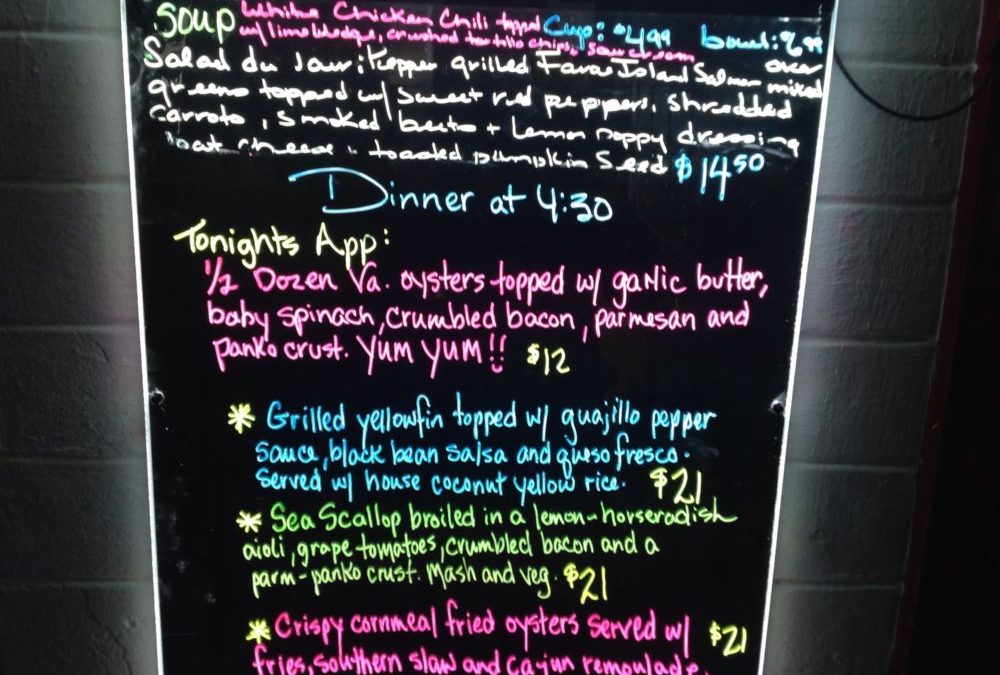 Soup White Chicken Chili topped Cup: $4.99 bowl: 6.99
w/ lime wedge, crushed tortilla chips, sour cream
Salad du Jour: Pepper grilled Faroe Island Salmon over mixed
greens topped w/ sweet red peppers, shredded
carrots, smoked beets + Lemon Poppy dressing
goat cheese + toasted pumpkin Seed $14.50
Dinner at 4:30
Tonights App:
1/2 Dozen Va. oysters topped w/ garlic butter,
baby spinach, crumbled bacon, parmesan and
panko crust. Yum Yum!! $12
* Grilled yellowfin topped w/ guajillo pepper
sauce, black bean salsa and queso fresco.
Served w/ house coconut yellow rice. $21
* Sea Scallop broiled in a lemon-horseradish
aioli, grape tomatoes, crumbled bacon and a
parm-panko crust. Mash and veg. $21
* Crispy cornmeal fried oysters served w/ $21
fries, southern slaw and cajun remoulade.